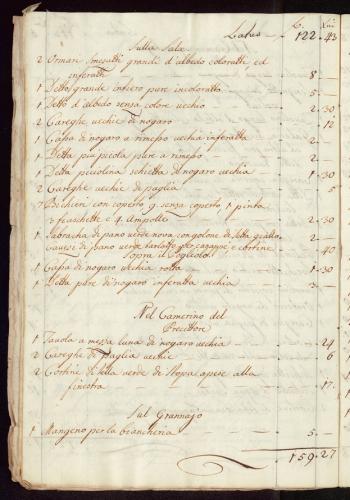 Latus - 122 - 42
Sulla Sala
2 Armari smesatti grandi d'albedo coloratti, ed
inferati - 8 -
1 Detto grande intiero pure incoloratto - 5 -
1 Detto d'albedo senza colore vechio - 2 - 30
2 Careghe vechie di nogaro - 12
1 Cassa di nogaro a rimesso vechia inferatta - 2 -
1 Detta più picola pure a rimesso - 2 -
1 Detta picolina schietta di nogaro vechia - 1 - 30
2 Careghe vechie di paglia - 5
7 Bichieri con coperto 9 senza coperto, 1 pinta
3 fiaschette e 4 Ampolle - 2 - 30
1 di pano verde nova con golone di setta giallo - 2 - 30
di pano verde e cortine - 40
Sopra il Poglolo
1 Cassa di nogaro vechia rotta - 1 - 30
1 Detta pure di nogaro inferatta vechia - 3 -
Nel Camerino del
Precettore
1 Tavola a mezza luna di nogaro vechia - 24
2 Careghe di paglia vechie - 6
2 Cortine di tela verde di stopa apese alla
finestra - 17
Sul Grannajo
1 Mangeno per la biancheria - 5 -
159 - 27